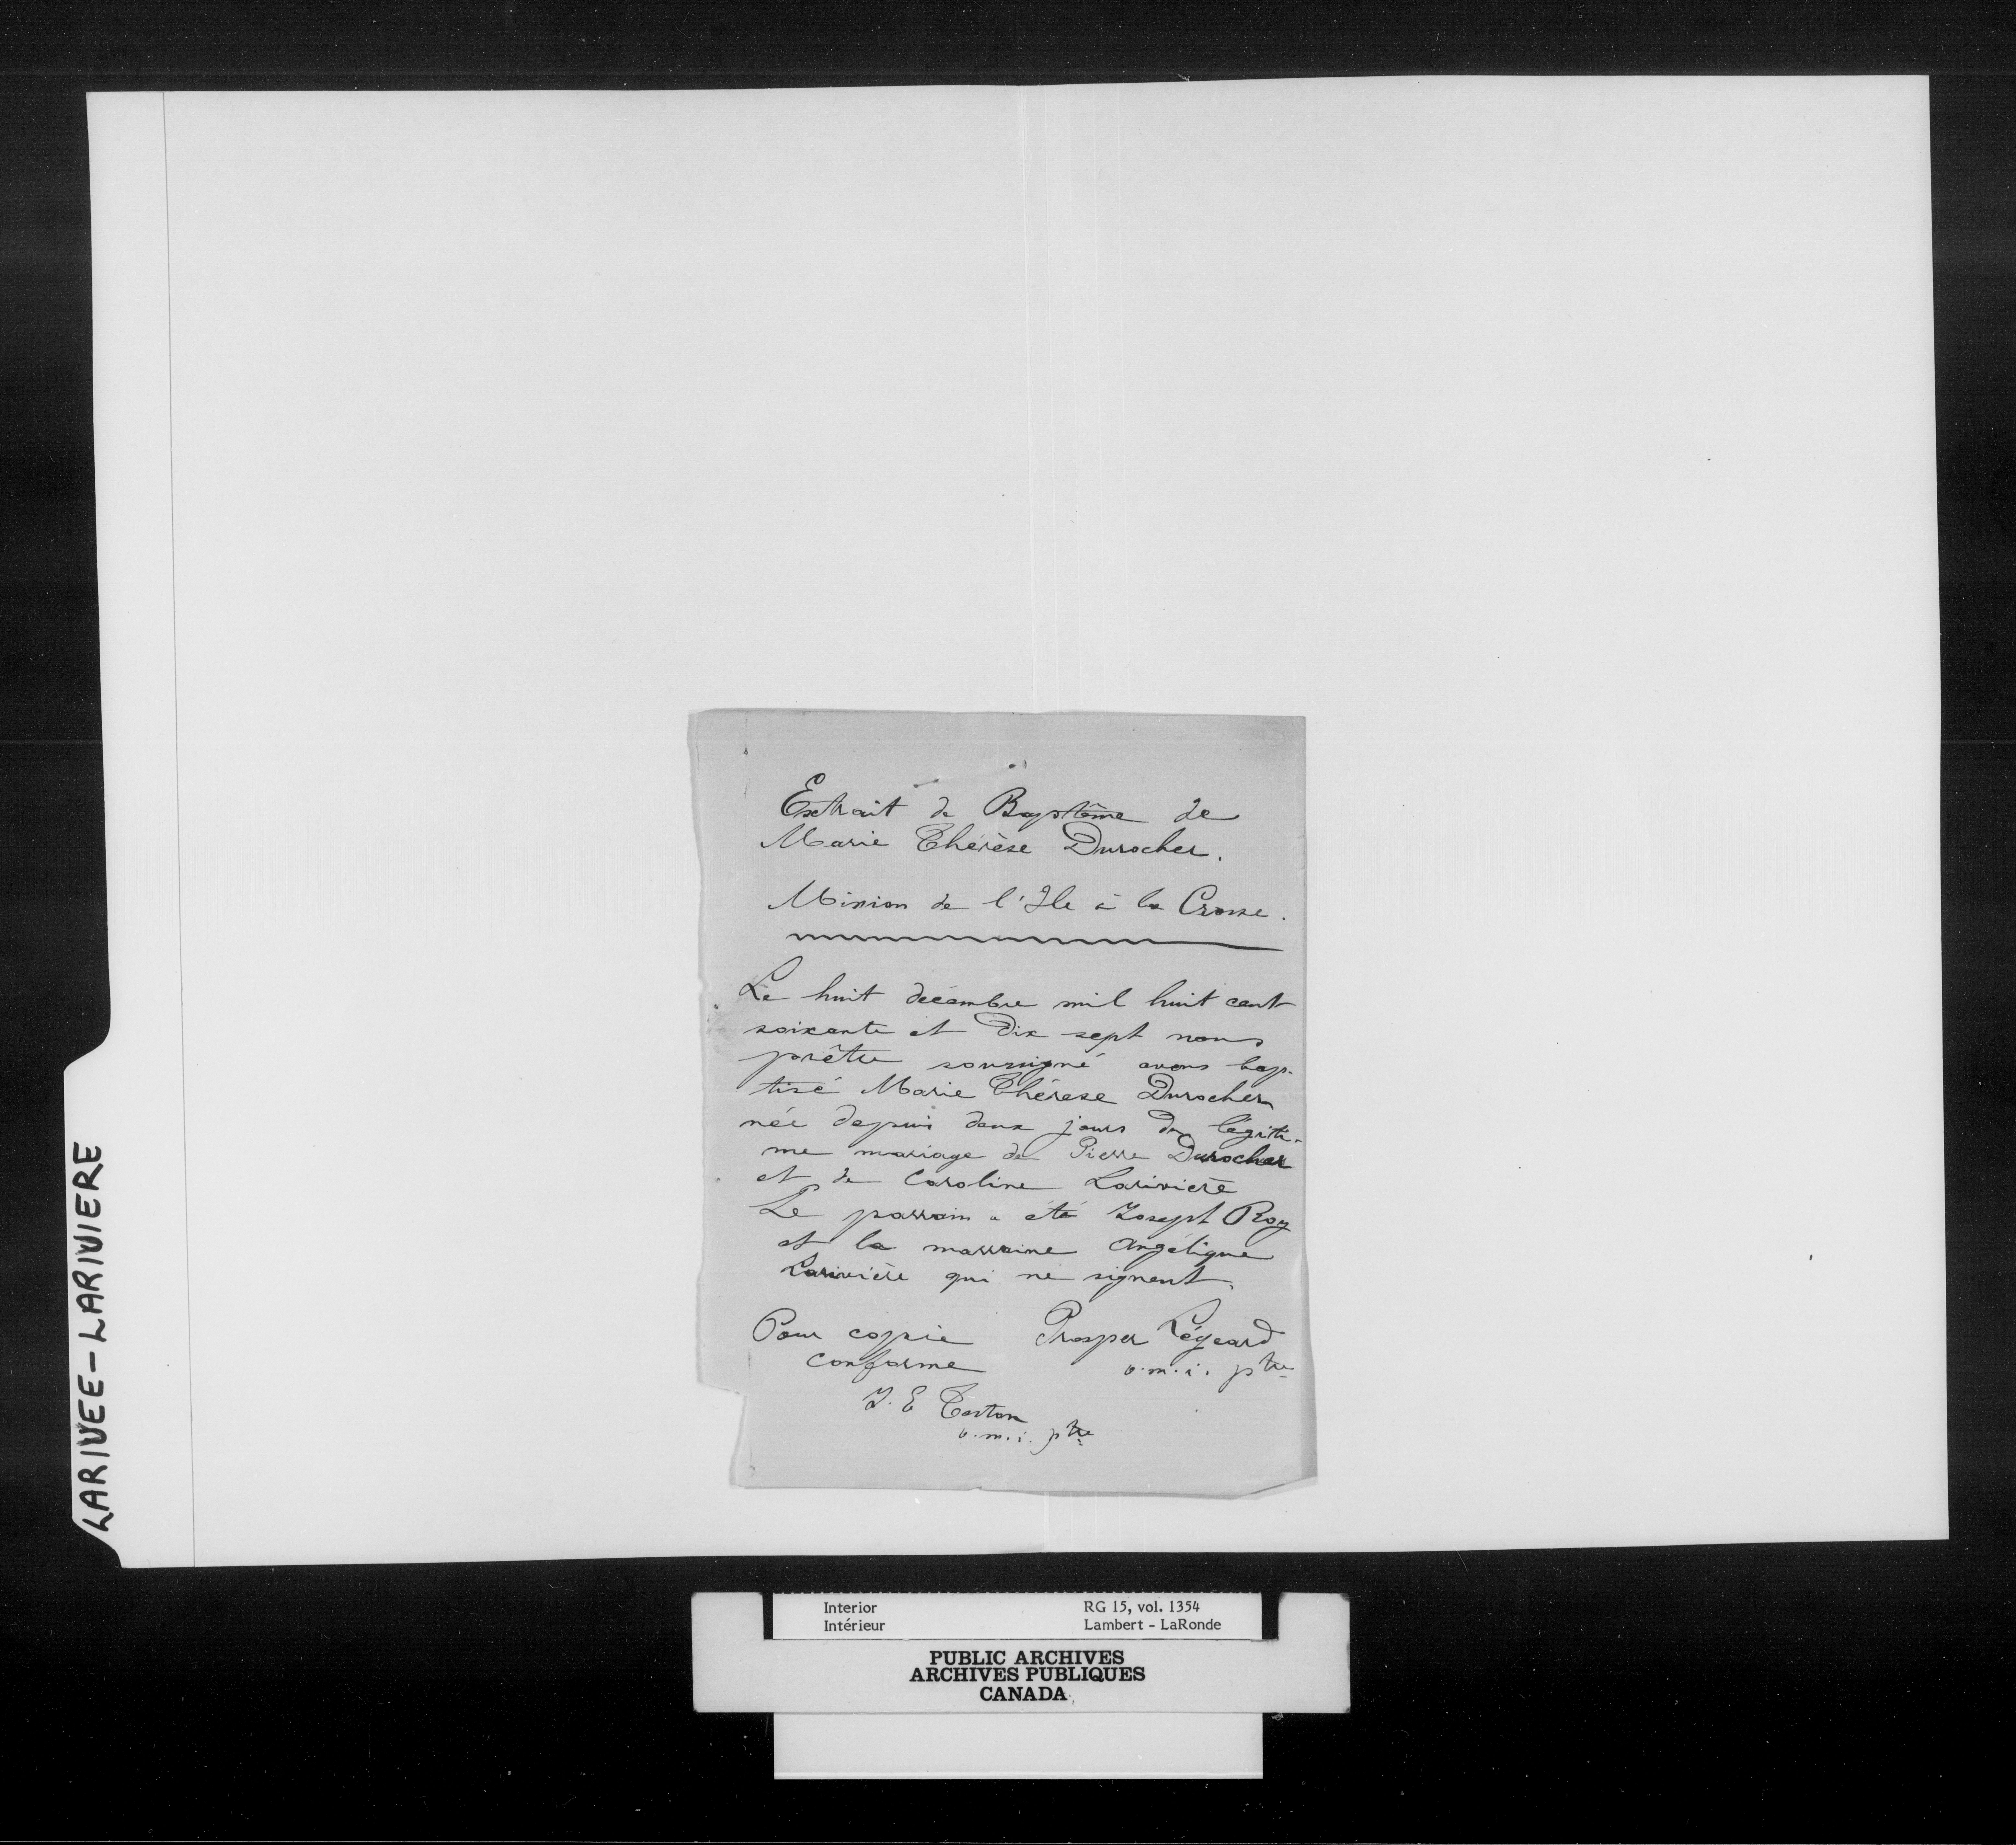 Extrait de Baptême de
Marie Thérèse Durocher.
Mission de l'Ile à la Crosse.
Le huit décembre mil huit cent
soixante et dix sept nous
prêtre soussigné avons bap-
tisé Marie Thérese Durocher
née depuis deux jours du légiti-
me mariage de Pierre Durocher
et de Caroline Larivière
Le parrain a été Joseph Roy
et la marraine Angélique
Larivière qui ne signent.
Pour copie
conforme
Prosper Légeard
o.m.i. ptre
J. E Teston
o.m.i. ptre
LARIVEE-LARIVIERE
Interior RG 15, vol. 1354
Intérieur Lambert - LaRonde
PUBLIC ARCHIVES
ARCHIVES PUBLIQUES
CANADA